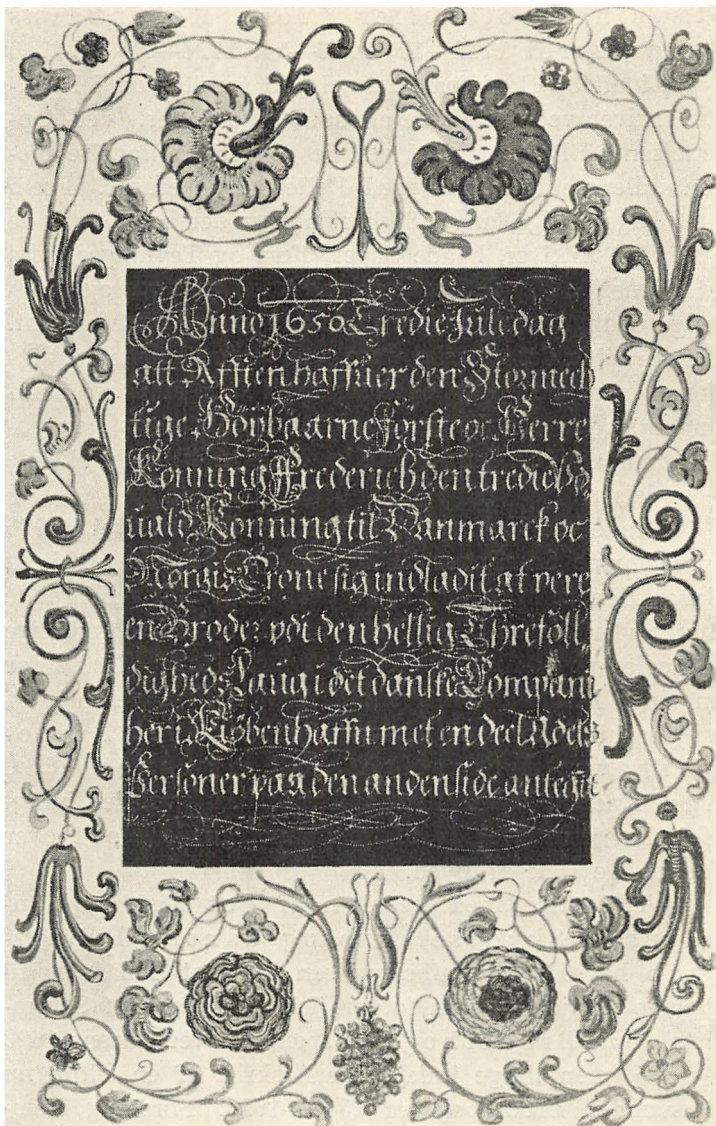 Anno 1650 Tredie Jule dag
att Afften haffuer den Stormech
tige Höybaarne Förste oc Herre
Konning Frederich den tredie Vd
uald Konning til Danmarck oc
Norgis Crone sig indladit at vere
en Broder vdi den hellig Threföll
digheds Laug i det danske Compani
her i Kiöbenhaffn met en deel Adels
Persöner paa den anden side antegnit